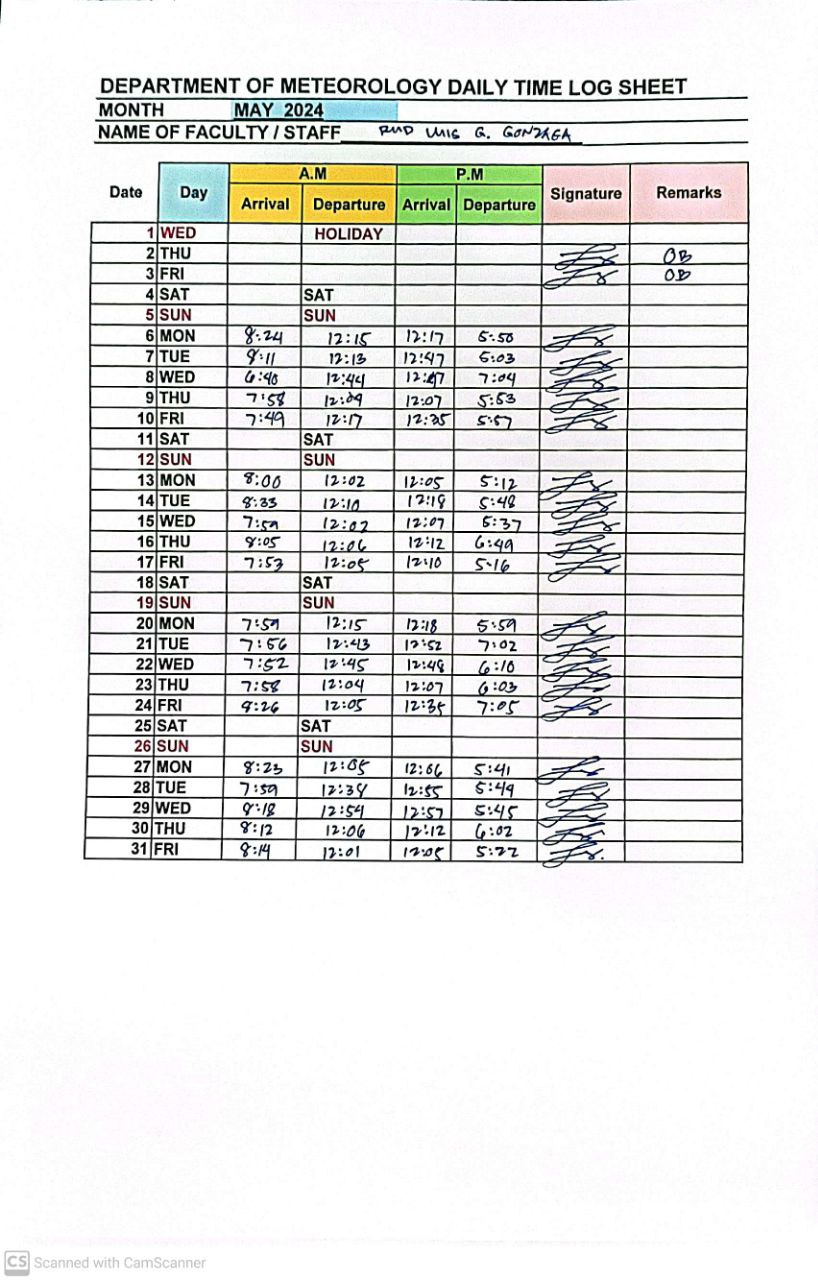 DEPARTMENT OF METEOROLOGY DAILY TIME LOG SHEET
MONTH MAY 2024
NAME OF FACULTY / STAFF LUIS G. GONZAGA
A.M P.M
Date Day Arrival Departure Arrival Departure Signature Remarks
1 WED HOLIDAY
2 THU OB
3 FRI OB
4 SAT SAT
5 SUN SUN
6 MON 8:24 12:15 12:17 5:50
7 TUE 8:11 12:13 12:47 5:03
8 WED 6:40 12:44 12:47 7:04
9 THU 7:58 12:04 12:07 5:53
10 FRI 7:49 12:17 12:35 5:57
11 SAT SAT
12 SUN SUN
13 MON 8:00 12:02 12:05 5:12
14 TUE 8:33 12:10 12:18 5:48
15 WED 7:59 12:02 12:07 5:37
16 THU 8:05 12:06 12:12 6:49
17 FRI 7:53 12:05 12:10 5:16
18 SAT SAT
19 SUN SUN
20 MON 7:59 12:15 12:18 5:59
21 TUE 7:56 12:43 12:52 7:02
22 WED 7:52 12:45 12:48 6:10
23 THU 7:58 12:04 12:07 6:03
24 FRI 12:05 12:35 7:05
25 SAT SAT
26 SUN SUN
27 MON 8:23 12:05 12:06 5:41
28 TUE 7:59 12:34 12:55 5:49
29 WED 12:54 12:57 5:45
30 THU 8:12 12:06 12:12 6:02
31 FRI 8:14 12:01 12:05 5:22
CS Scanned with CamScanner